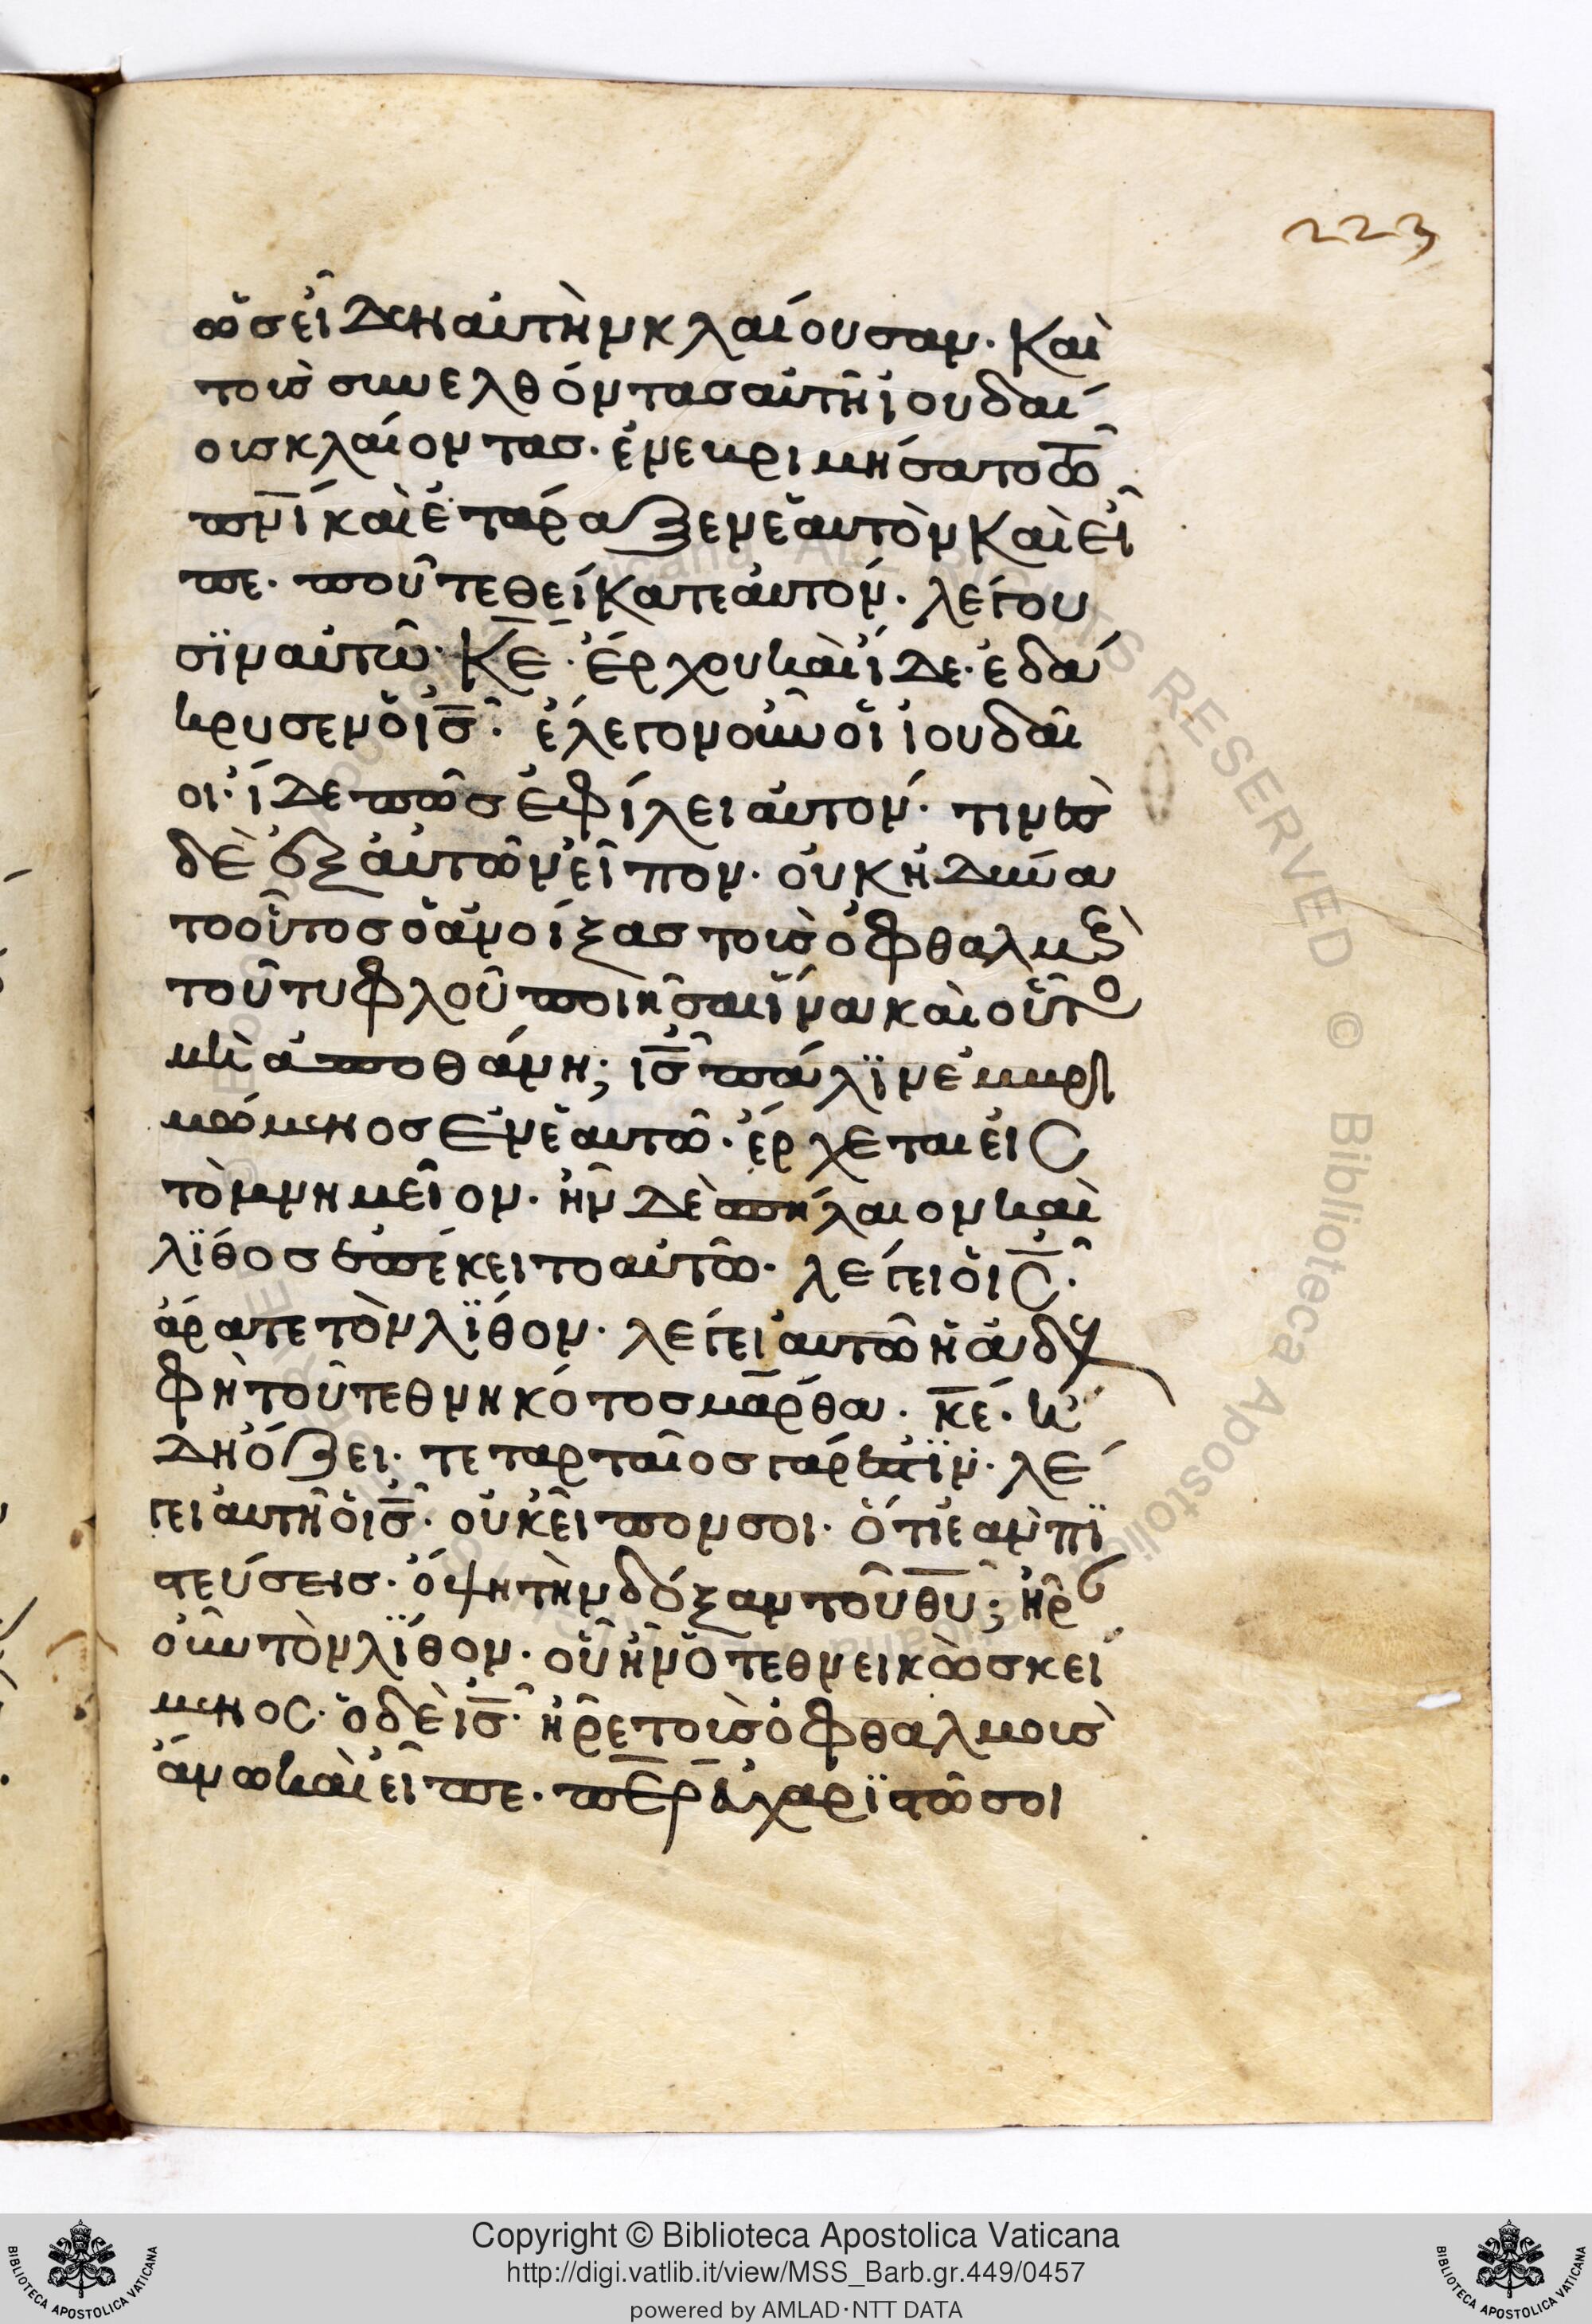 223
ὡσ εἶδεν αὐτὴν κλαίουσαν· Καὶ
τοὺσ συνελθόντασ αὐτῆ ἰουδαί
ουσ κλαίοντασ· ἐνευριμήσατο τῶ
π̅ν̅ί καὶ ἐτάραξεν ἑαυτὸν Καὶ εἶ
πε· ποῦ τεθείκατε ἀυτον· λέγου
σϊν αὐτῶ· Κ̅Ε̅· ἔρχου καὶ ἴδε· ἐδά
κρυσεν ὁ ι̅σ̅· ἔλεγον οὖν οἱ ἰουδαῖ
οι· ἴδε πῶσ ἐφίλει ἀυτον· τινὲσ
δὲ ἐξ ἀυτῶν εἶπον· οὐκ ἠδύνα
το οὗτοσ ὁ ἀνοίξασ τοὺσ ὀφθαλμοὺς
τοῦ τυφλοῦ ποιῆσαι ἵνα καὶ οὗτο
μὴ ἀποθάνη; ι̅σ̅ πάλϊν ἐμβρι
μώμενοσ ἐν ἑαυτῶ· ἔρχεται εἰς
τὸ μνημεῖον· ἦν δὲ σπήλαιον καὶ
λΐθοσ ἐπέκειτο αὐτῶ· λέγει ὁ ι̅ς̅·
ἄρατε τὸν λΐθον· λέγει ἀυτῶ ἡ ἀδελ
φὴ τοῦ τεθνηκότοσ μάρθα· κ̅ε̅· ἤ
δη ὄζει· τεταρταῖοσ γάρ ἐστϊν· λέ
γει ἀυτῆ ὁ ι̅σ̅· οὐκ εἶπον σοι· ὅτι ἐὰν πϊ
στεύσεισ· ὄψη τὴν δόξαν τοῦ θ̅υ̅; ἦραν
οὖν τὸν λΐθον· οὗ ἦν ὁ τεθνεικὼσ κεί
μενος· ὁ δὲ ι̅σ̅· ἦρε τοὺσ ὀφθαλμουσ
ἄνω καὶ εἶπε· π̅ε̅ρ̅ ἐυχαρϊστῶ σοι
Copyright © Biblioteca Apostolica Vaticana
http://digi.vatlib.it/view/MSS_Barb.gr.449/0457
powered by AMLAD·NTT DATA